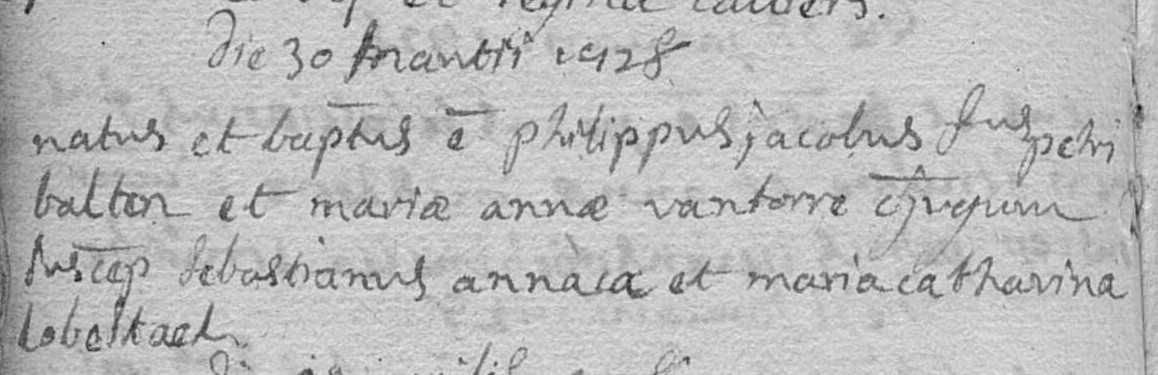 et regina
die 30 martii 1728
natus et baptus ē philippus jacobus fius petri
balten et mariæ annæ vantorre cjugum
suscep sebastianus annaca et maria catharina
lobestael